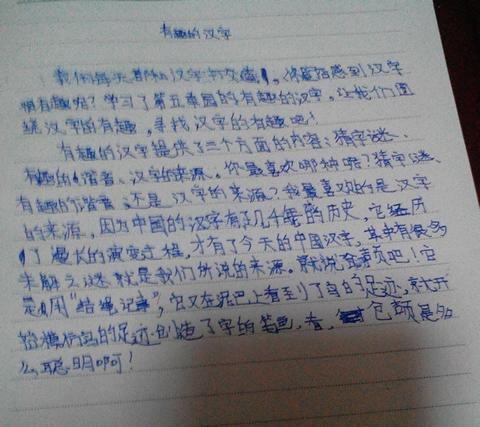 有趣的汉字
我们每天都和汉字打交道，你是否感到汉字
很有趣呢？学习了第五单园的有趣的汉字，让我们围
绕汉字的有趣，寻找汉字的有趣吧！
有趣的汉字提供了三个方面的内容：猜字谜、
有趣的谐音、汉字的来源。你最喜欢哪钟呢？猜字谜、
有趣的谐音、还是汉字的来源？我最喜欢的是汉字
的来源，因为中国的汉字有几千年的历史，它经历
了漫长的演变过程，才有了今天的中国汉字，其中有很多
未解之谜就是我们所说的来源。就说仓颉吧！它
是用“结绳记事”，它又在泥巴上看到了鸟的足迹，就开
始模仿鸟的足迹创造了字的笔
看，仓颉是多
么聪明啊！